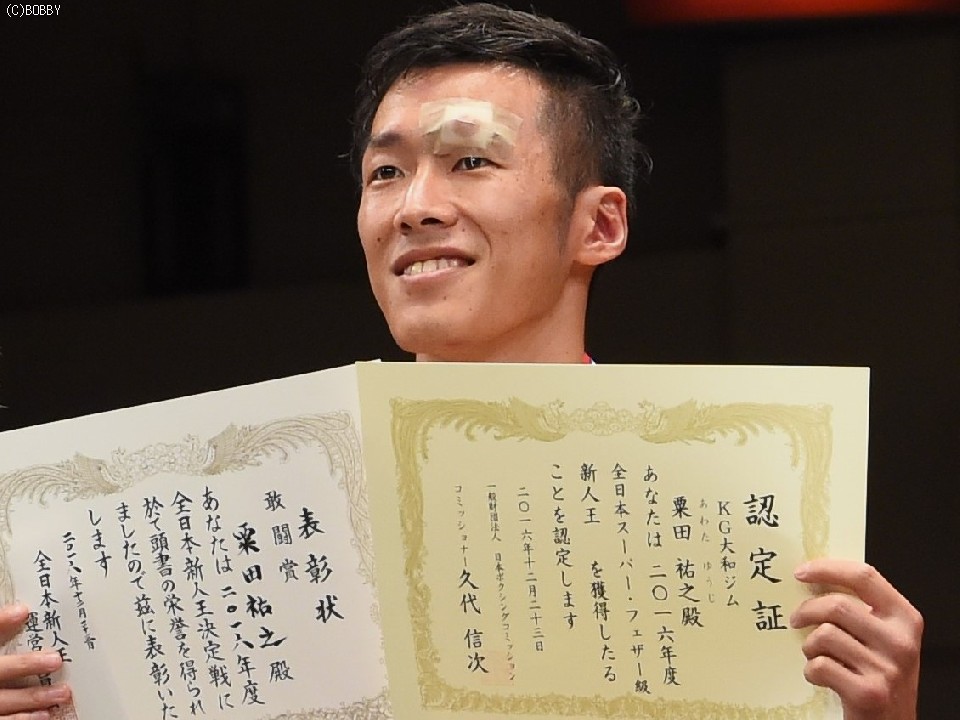 (C)BOBBY
認定証
KG大和ジム
あわた ゆうじ
粟田 祐之殿
あなたは 二〇一六年度
全日本スーパー・フェザー級
新人王 を獲得したる
ことを認定します
二〇一六年十二月二十三日
一般財団法人 日本ボクシングコミッション
コミッショナー 久代 信次
表彰状
敢闘賞
粟田祐之殿
あなたは二〇一六年度
全日本新人王決定戦に
於て頭書の栄誉を得られ
ましたので茲に表彰いた
します
全日本新人王
運営